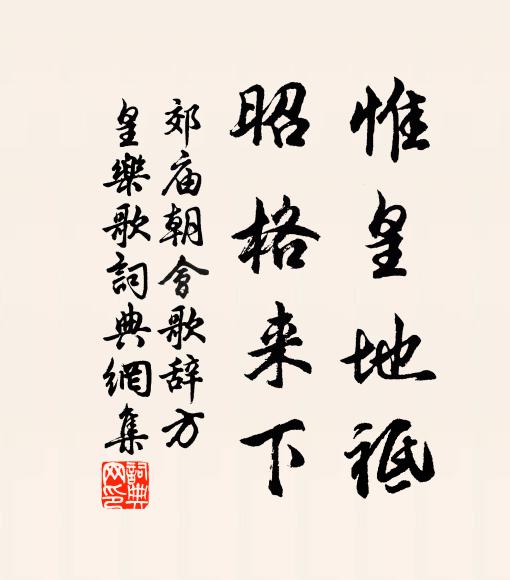 惟皇地祗
昭格来下
郊庙朝會歌辞方
皇樂歌詞典網集
詞典網印